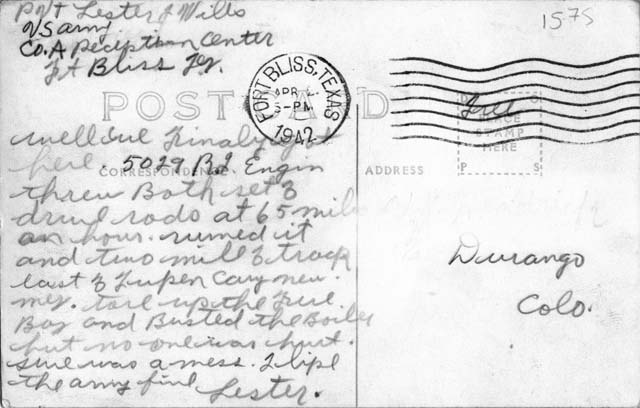 Pvt Lester J Wills
US army
Co. A Reception Center
Ft Bliss Tex.
1575
FORT BLISS, TEXAS
APR
5-PM
1942
POST CARD
Free
PLACE
STAMP
HERE
P S
CORRESPONDENCE
ADDRESS
well we Finaly got
here. 5029 Engin
threw Both set of
drive rods at 65 miles
an hour. ruined it
and two mile of track
East of Cary new
mex. tore up the Fire
Box and Busted the Boiler
but no one was hurt.
sure was a mess. I like
the army fine
Lester.
Durango
Colo.